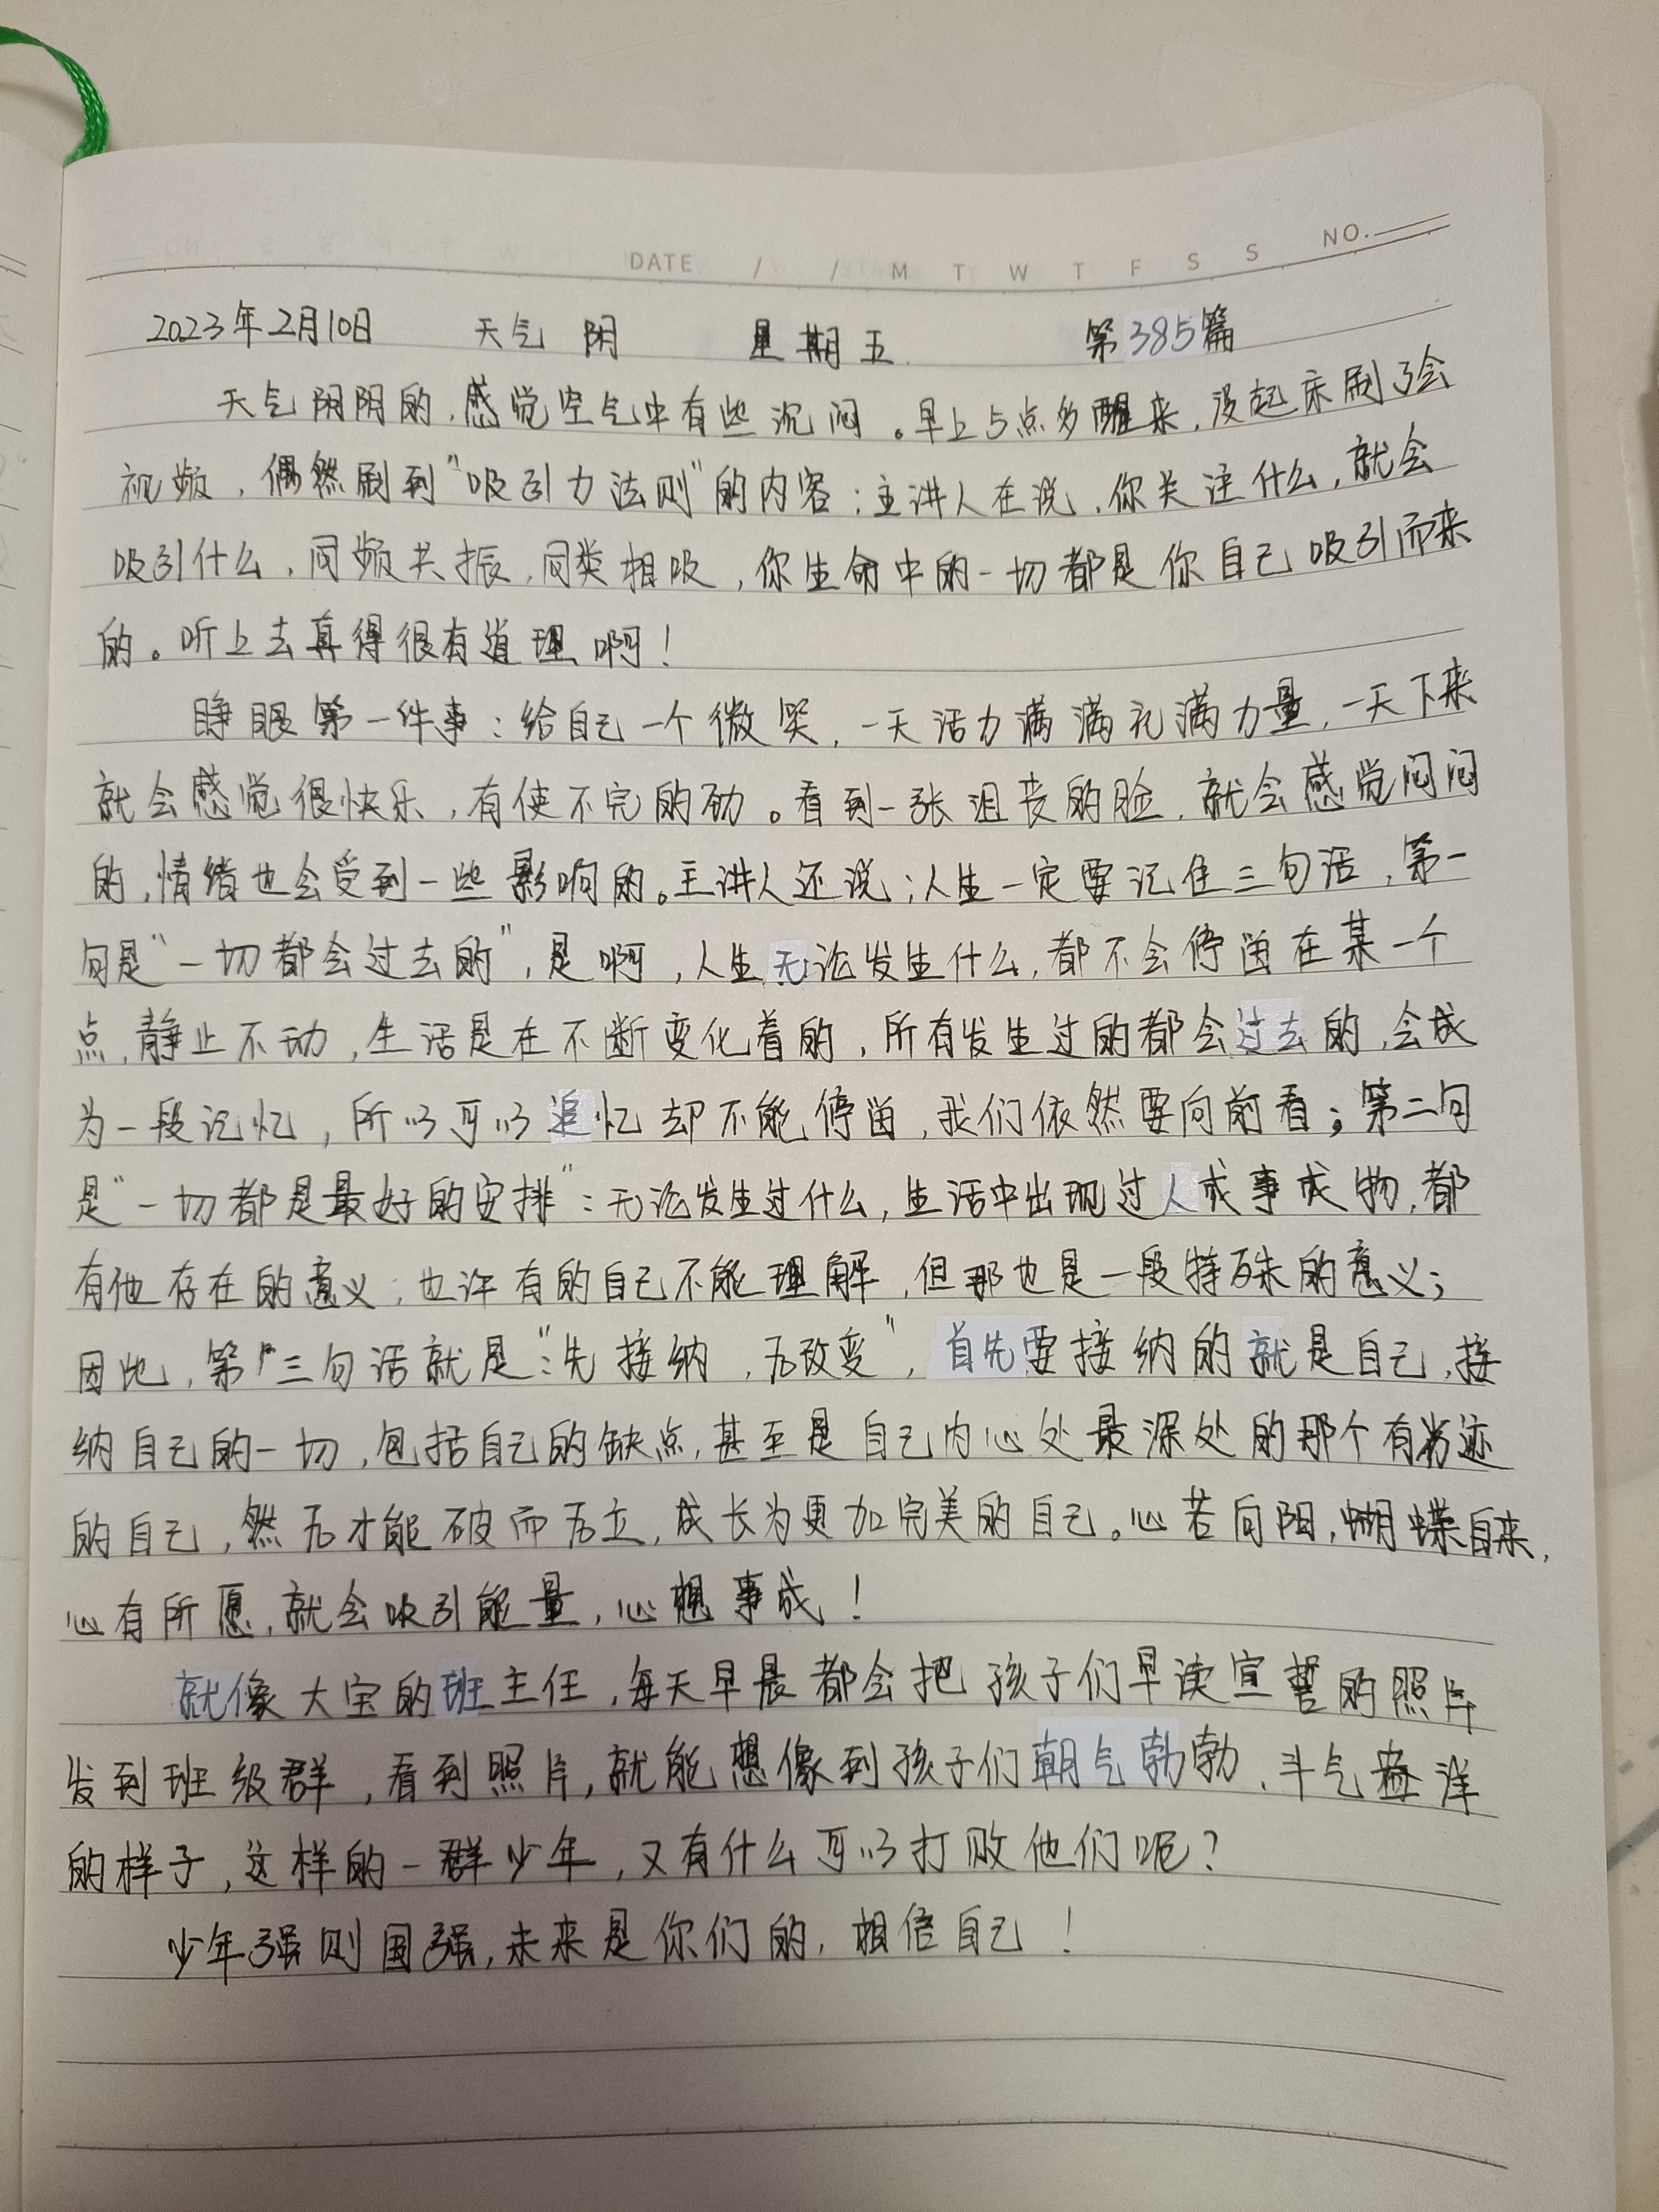 DATE / / M T W T F S S NO.
2023年2月10日 天气 阴 星期五 第385篇
天气阴阴的，感觉空气中有些沉闷。早上5点多醒来，没起床刷了会
视频，偶然刷到"吸引力法则"的内容：主讲人在说，你关注什么，就会
吸引什么，同频共振，同类相吸，你生命中的一切都是你自己吸引而来
的。听上去真得很有道理啊！
睁眼第一件事：给自己一个微笑，一天活力满满充满力量，一天下来
就会感觉很快乐，有使不完的劲。看到一张沮丧的脸，就会感觉闷闷
的，情绪也会受到一些影响的。主讲人还说：人生一定要记住三句话，第一
句是"一切都会过去的"，是啊，人生无论发生什么，都不会停留在某一个
点，静止不动，生活是在不断变化着的，所有发生过的都会过去的，会成
为一段记忆，所以可以追忆却不能停留，我们依然要向前看；第二句
是"一切都是最好的安排"：无论发生过什么，生活中出现过人或事或物，都
有他存在的意义；也许有的自己不能理解，但那也是一段特殊的意义；
因此，第三句话就是"：先接纳，后改变"，首先要接纳的就是自己，接
纳自己的一切，包括自己的缺点，甚至是自己内心处最深处的那个有劣迹
的自己，然后才能破而后立，成长为更加完美的自己。心若向阳，蝴蝶自来，
心有所愿，就会吸引能量，心想事成！
就像大宝的班主任，每天早晨都会把孩子们早读宣誓的照片
发到班级群，看到照片，就能想像到孩子们朝气勃勃、斗气盎洋
的样子，这样的一群少年，又有什么可以打败他们呢？
少年强则国强，未来是你们的，相信自己！